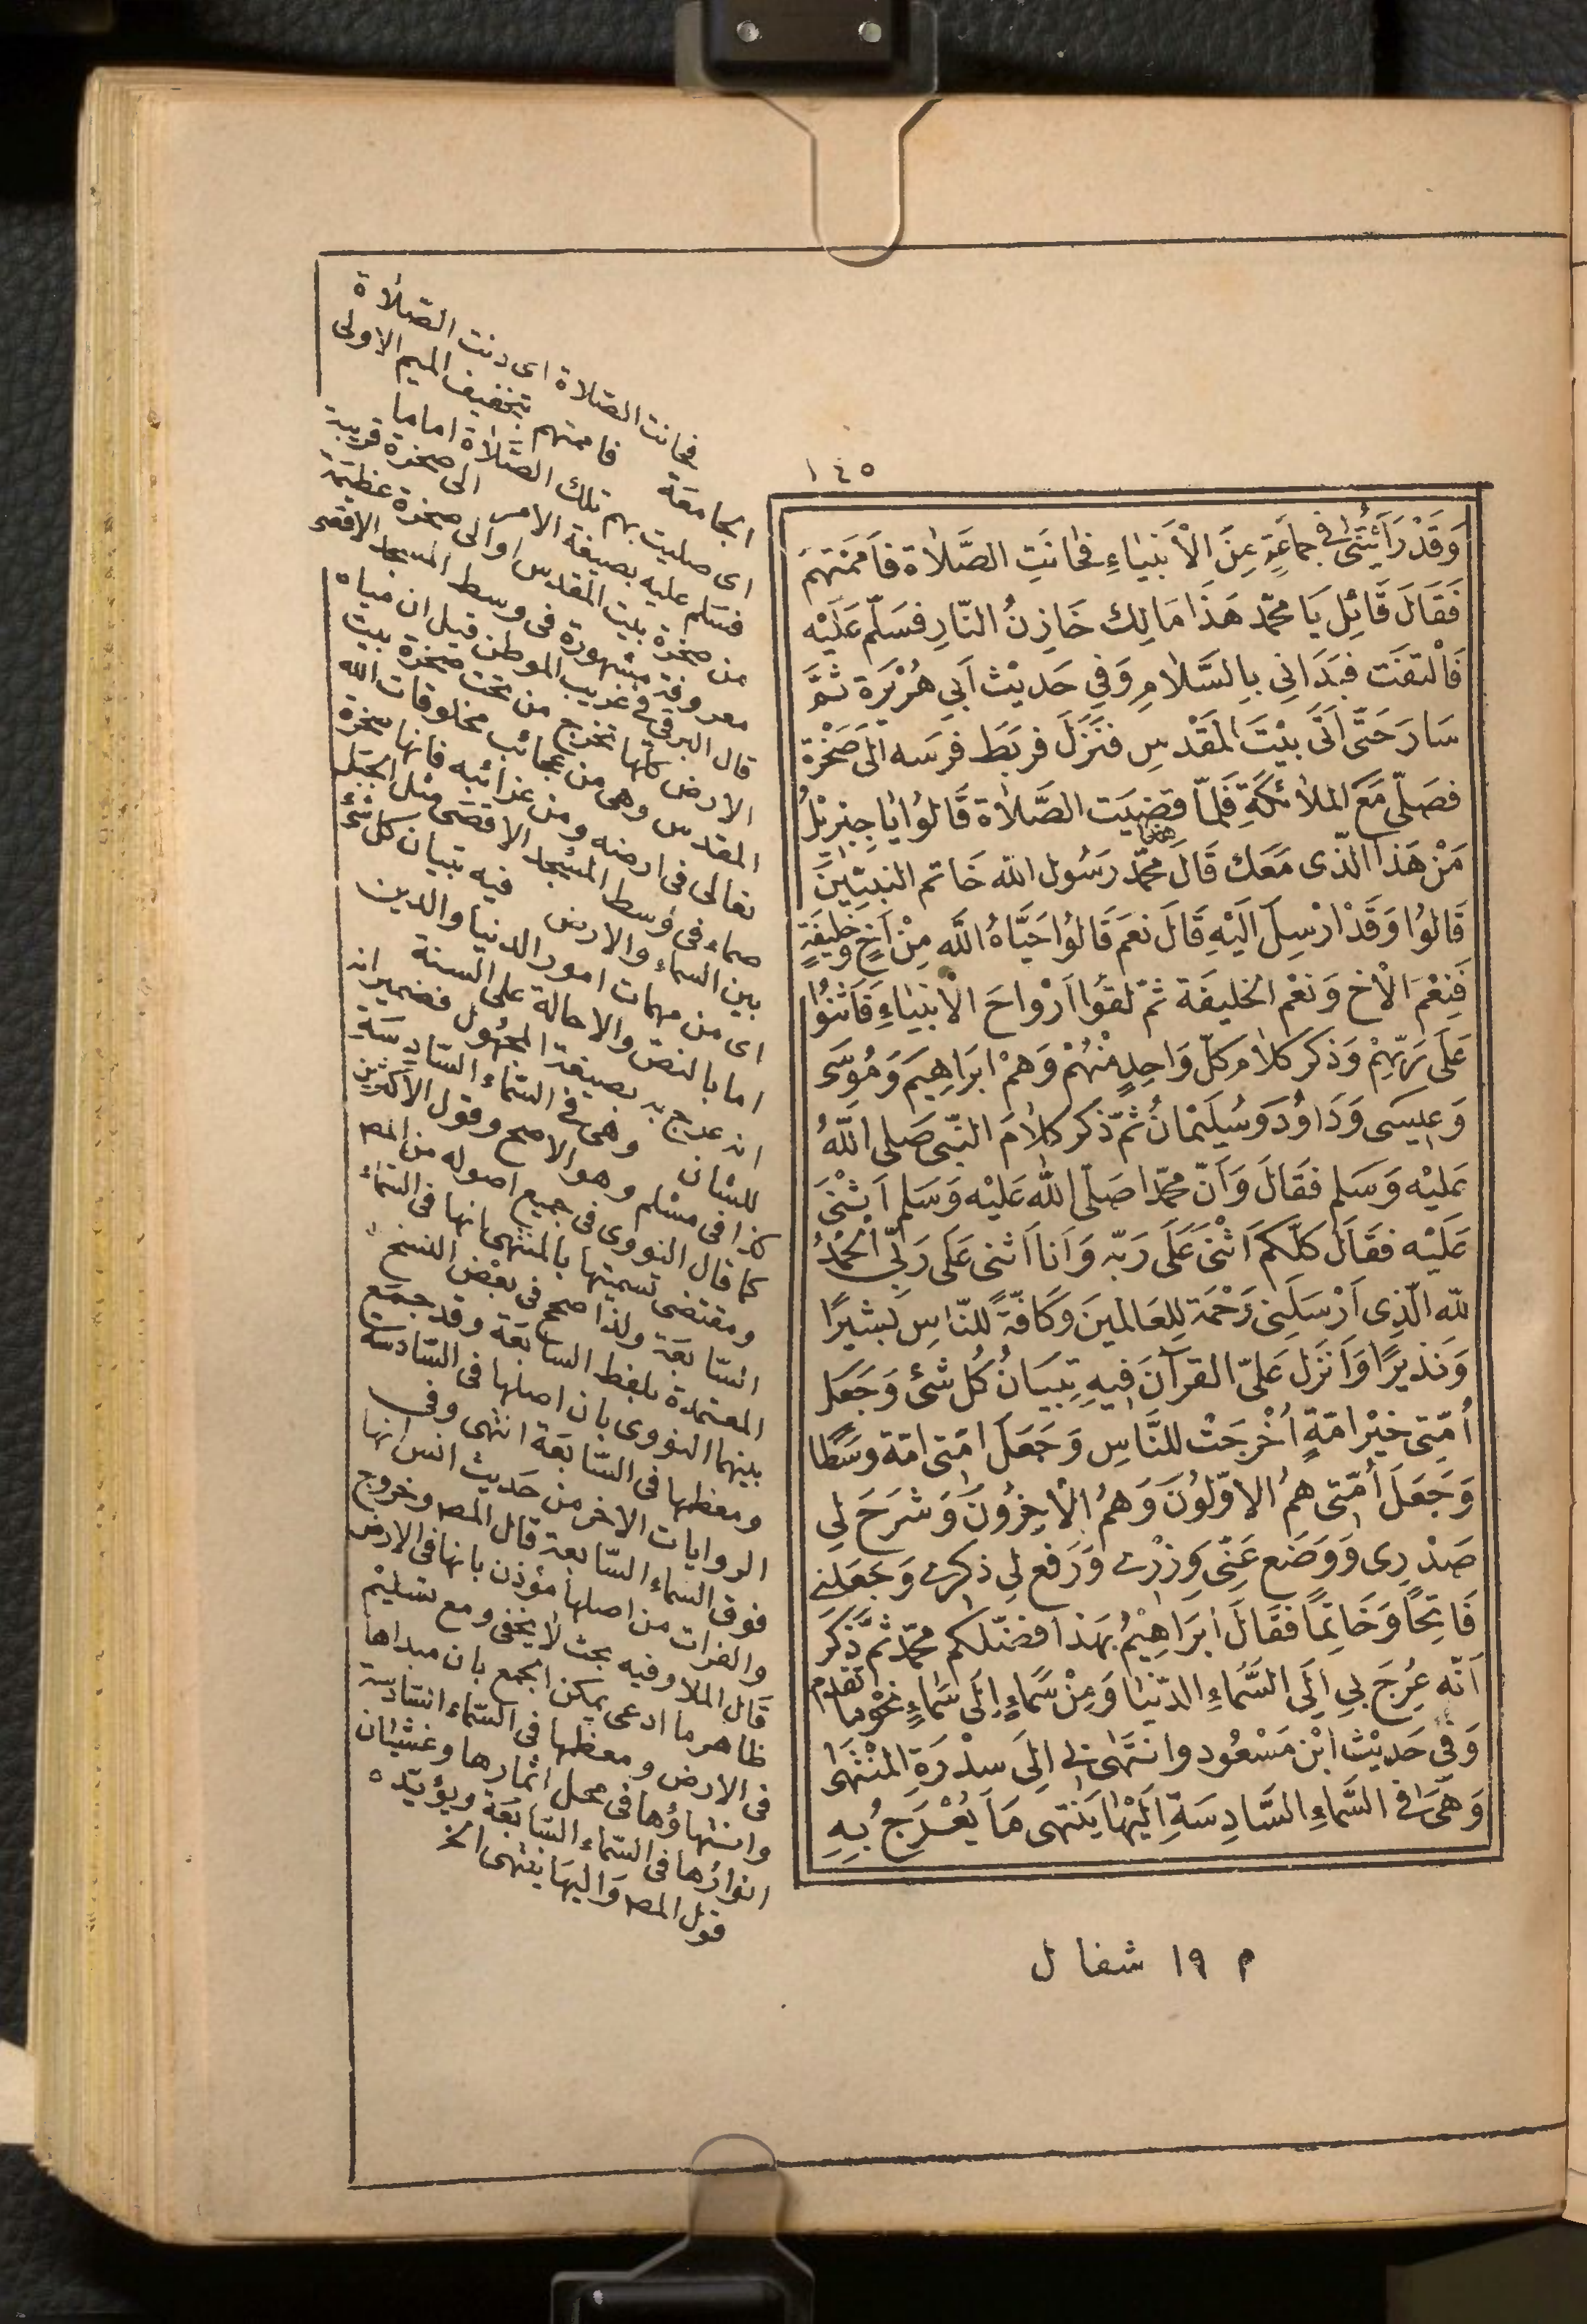 ١٤٥
وَقَدْ رَأَيْتَنِى فى جماعَةٍ مِنَ الْأَنبْيَاءِ فحَانَتِ الصَّلَاة فَأَمَمْتهُمْ
فَقَالَ قَائِل يَا محمّد هَذَا مَالِك خَازِنُ النّارِ فسَلّم عَلَيْه
فَالْتفَت فبَدَانِي بِالسَّلَامِ وَفِي حَديْث اَبِي هُرَيْرَة ثمَّ
سَارَ حَتّى اَتَى بيْتَ المَقْدسِ فنَزَلَ فربَط فرَسَه اِلَى صَخْرَة
فصَلّى مَعَ الملائكةِ فَلمّا قضِيَت الصَّلَاة قَالوُا يَا جِبْرِيْلُ
مَنْ هَذَا الّذى مَعَك قَالَ هذا محمّد رَسُول الله خَاتم النبيّيْنَ
قَالوُا وَقَدْ ارْسِلَ الَيْهِ قَالَ نعَم قَالوُا حَيَّاهُ اللَّه مِنْ اَخٍ وخَليفَةٍ
فَنِعْمَ الْأخ وَنعْم الخَليفَة ثمّ لقوُا اَرْوَاحَ الْأنبْيَاءِ فَاَثنَوُا
عَلَى رَبّهِمْ وَذكر كلَام كلّ وَاحِدٍ مْنْهُمْ وَهمْ ابرَاهِيمَ وَمُوسَى
وَعِيسَى وَدَاوُدَ وَسُلَيْمَانُ ثمّ ذكَر كلَامَ النّبى صَلى اللَّهُ
عَليْه وَسَلم فقَالَ وَاَنّ محمّدا صَلّى الله عَليْه وَسَلم اَثنْىَ
عَلَيْه فقَالَ كلّكمْ اَثْنىَ عَلَى رَبّه وَاَنا اثنى عَلَى رَبِّى الْحَمْدُ
لله الّذِى اَرْسَلَنى رَحْمَة لِلعَالمِينَ وَكَافّةً للنّاسِ بَشِيرًا
وَنَذيرًا وَاَنزَل عَليّ القرآنَ فِيهِ تِبيَانُ كُل شئ وَجَعَل
اُمّتِى خيْرَ امّةٍ اُخْرجَتْ للنَّاسِ وَجَعَلَ امّتى امّة وسَطًا
وَجَعَلَ اُمّتى همُ الاوّلوُنَ وَهمُ الْاٰخِرُونَ وَشَرَحَ لِي
صَدْرِى وَوَضَع عَنّى وِزْرى وَرَفع لِي ذكرى وَجَعَلنى
فَاتِحًا وَخَاتِمًا فقَالَ ابرَاهِيْمُ بهَذا فضَلكم محمّد ثمّ ذَكَرَ
اَنّه عُرِجَ بِي اِلَى السَّمَاءِ الدّنيَا وَمِنْ سَمَاءٍ اِلَى سَمَاءٍ نحْوَ ما تقدم
وَفى حَديْثِ ابْن مَسْعُود وانتَهَى بى اِلَى سدْرَةِ المُنْتَهَى
وَهَىَ فى السَّمَاءِ السَّادِسَةِ اِلَيْهَا يَنْتَهى مَا يُعْرَجُ بِهِ
م ١٩ شفا ل
فحانت الصّلاة اى دنت الصّلاة
الجامعَة فاممتهم بتخفيف الميم الاولى
اى صليت بهم تلك الصّلاة اماما
فسَلم عليه بصيغة الامر الى صخرة قريبة
من صخرة بيت المقدس او الى صخرة عظيمَة
معروفة مشهورة فى وسط المسجد الاقصى
قال البرقى فى غريب الموطن قيل ان مياه
الارض كلّها تخرج من تحت صخرة بيت
المقدس وهى من عجائب مخلوقات الله
تعالى فى ارضه ومن غرائبه فانها صخرة
صماء فى وسط المسْجد الاقصَى مثل الجبَل
بين السماء والارض فيه تبيان كل شئ
اى من مهمات امور الدنيا والدين
اما بالنصّ والاحالة على السنة
انه عرج به بصيغة المجهُول فضمير انه
للشان وهى فى السّماء السّادسَةِ
كذا فى مسْلم وهو الاصح وقول الاكثرين
كما قال النووى فى جميع اصوله من المص
ومقتضى تسميتها بالمنتهى انها فى السّماء
السّابعَة ولذا صحح فى بعْض النسَخ
المعتمدة بلفظ السابعَة وقد جمَع
بينهما النووى بان اصلها فى السّادسَة
ومعظمها فى السّابعَة انتهى وفى
الروايات الاخر من حَديث انس انها
فوق السّماء السّابعة قال المص وخروج
والفرات من اصلها مؤذن بانها فى الارض
قَال الملا وفيه بحث لا يخفى ومع تسَليْم
ظاهر ما ادعى يمكن الجمع بان مبداها
فى الارض ومعظمها فى السّماء السّادسة
وانتهاؤها فى محل اثمارها وغشيان
انوارُها فى السّماء السّابعَة ويؤيّده
قول المص وَاليهَا ينتهى الخ